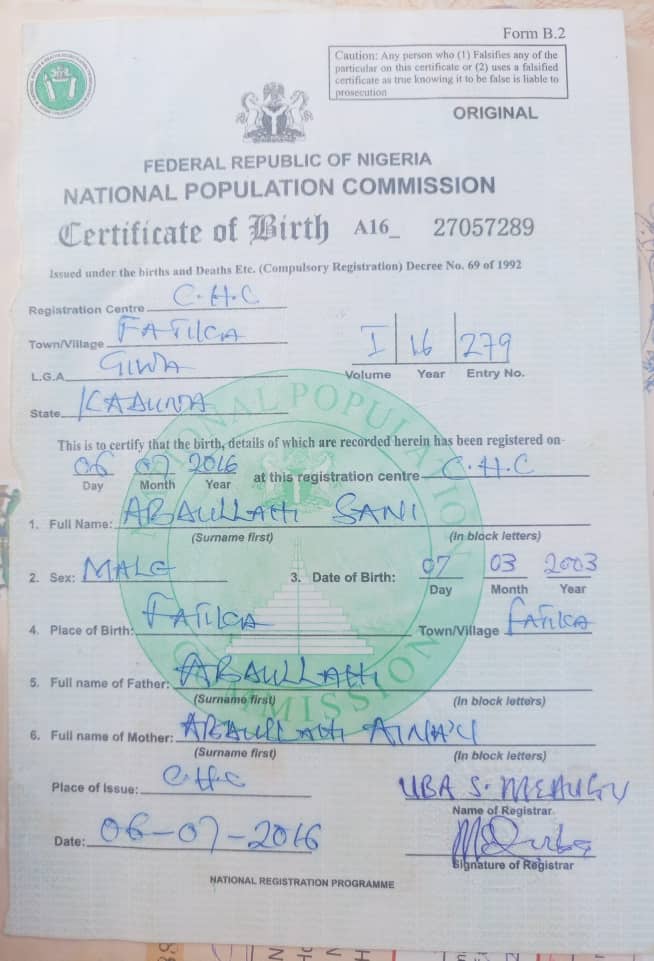 Form B.2
Caution: Any person who (1) Falsifies any of the
particular on this certificate or (2) uses a falsified
certificate as true knowing it to be false is liable to
prosecution
ORIGINAL
FEDERAL REPUBLIC OF NIGERIA
NATIONAL POPULATION COMMISSION
Certificate of Birth A16_ 27057289
Issued under the births and Deaths Etc. (Compulsory Registration) Decree No. 69 of 1992
Registration Centre C.H.C
Town/Village FATIKA
L.G.A. GIWA
I 16 279
Volume Year Entry No.
State KADUNA
This is to certify that the birth, details of which are recorded herein has been registered on-
06 07 2016 at this registration centre C.H.C
Day Month Year
1. Full Name: ABDULLAHI SANI
(Surname first) (In block letters)
2. Sex: MALE 3. Date of Birth: 07 03 2003
Day Month Year
4. Place of Birth: FATIKA Town/Village FATIKA
5. Full name of Father: ABDULLAHI
(Surname first) (In block letters)
6. Full name of Mother: ABDULLAHI
(Surname first) (In block letters)
Place of Issue: C.H.C
UBA S.
Name of Registrar
Date: 06-07-2016
Signature of Registrar
NATIONAL REGISTRATION PROGRAMME
NATIONAL POPULATION COMMISSION